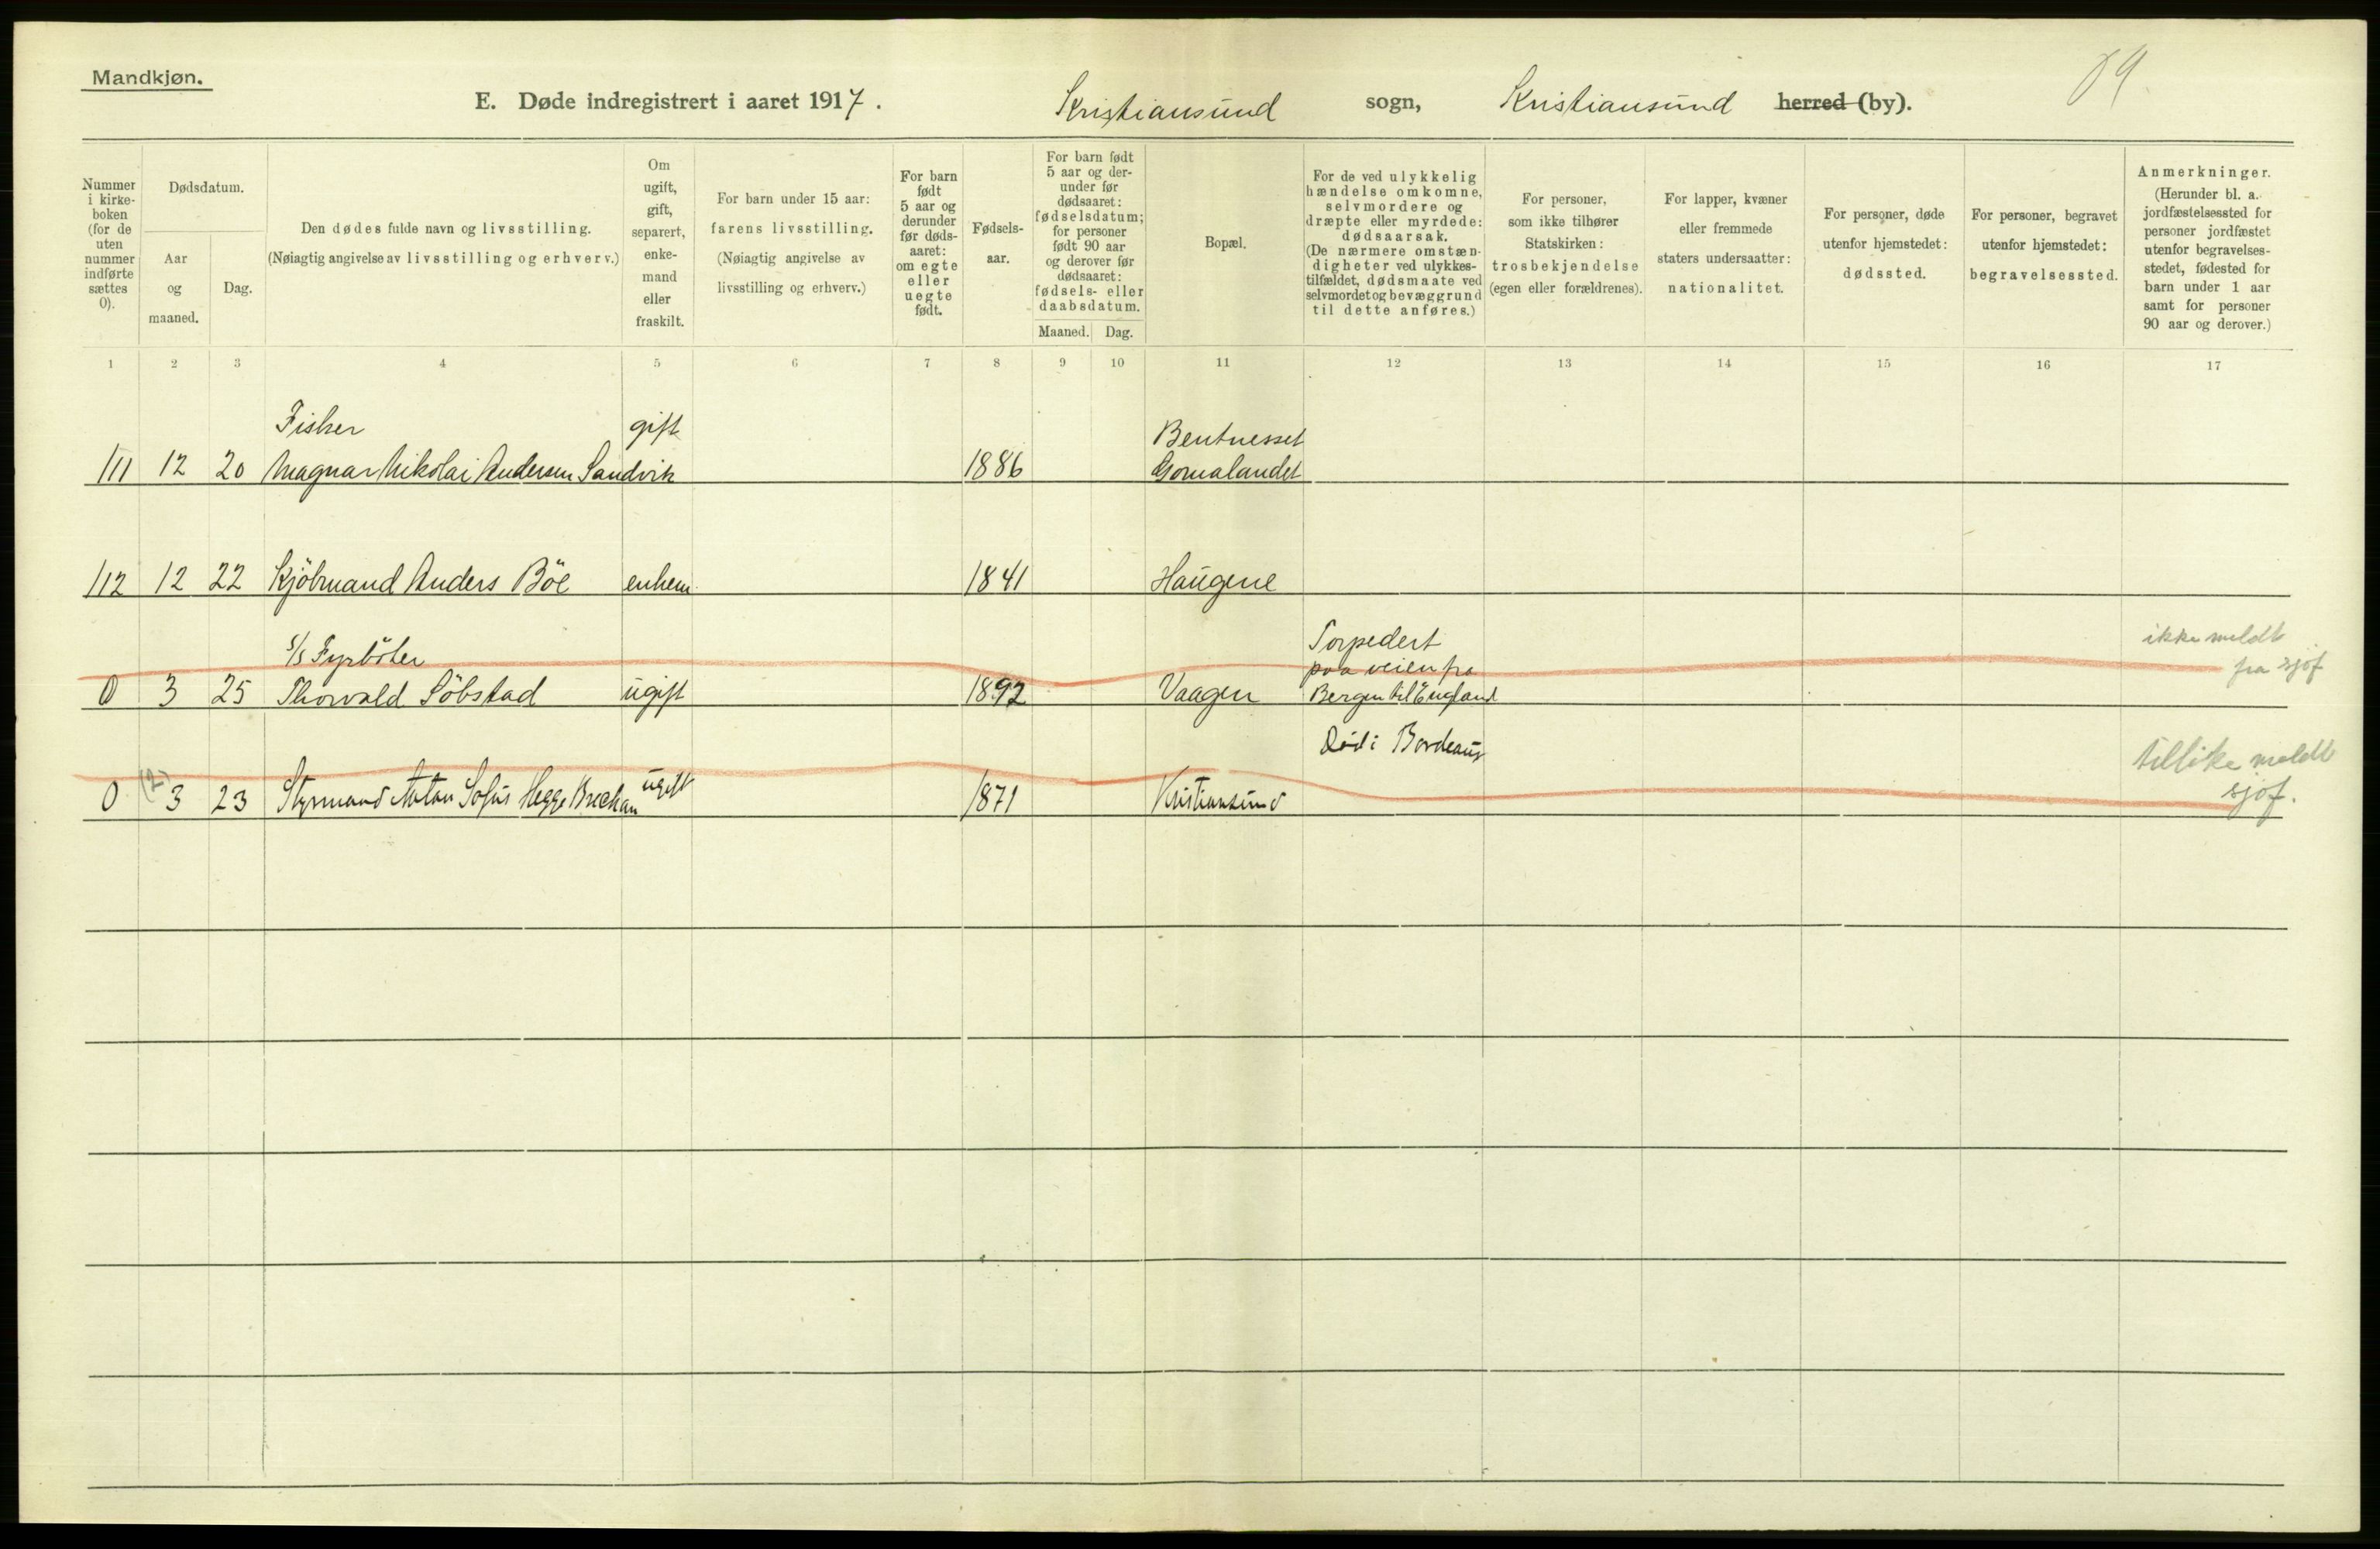 Mandkjøn.
E. Døde indregistrert i aaret 1917. Kristiansund sogn, Kristiansund herred (by).
Nummer i kirkeboken (for de uten nummer indførte sættes 0).
Dødsdatum.
Aar og maaned.
Dag.
Den dødes fulde navn og livsstilling.
(Nøiagtig angivelse av livsstilling og erhverv.)
Om ugift, gift, separert, enkemand eller fraskilt.
For barn under 15 aar:
farens livsstilling.
(Nøiagtig angivelse av livsstilling og erhverv.)
For barn født 5 aar og derunder før dødsaaret: om egte eller uegte født.
Fødselsaar.
For barn født 5 aar og derunder før dødsaaret: fødselsdatum; for personer født 90 aar og derover før dødsaaret: fødsels- eller daabsdatum.
Maaned.
Dag.
Bopæl.
For de ved ulykkelig hændelse omkomne, selvmordere og dræpte eller myrdede: dødsaarsak.
(De nærmere omstændigheter ved ulykkestilfældet, dødsmaate ved selvmordet og bevæggrund til dette anføres.)
For personer, som ikke tilhører Statskirken: trosbekjendelse (egen eller forældrenes).
For lapper, kvæner eller fremmede staters undersaatter: nationalitet.
For personer, døde utenfor hjemstedet: dødssted.
For personer, begravet utenfor hjemstedet: begravelsessted.
Anmerkninger.
(Herunder bl. a. jordfæstelsessted for personer jordfæstet utenfor begravelsesstedet, fødested for barn under 1 aar samt for personer 90 aar og derover.)
1 2 3 4 5 6 7 8 9 10 11 12 13 14 15 16 17
Fisker gift Bentnesset
111 12 20 Magnar Nikolai Andersen Sandvik 1886 Gomalandet
112 12 22 Kjöbmand Anders Böe enkem. 1841 Haugene
s/s Fyrböter Torpedert ikke meldt
paa veien fra fra sjöf
0 3 25 Thorvald Söbstad ugift 1892 Vaagen Bergen til England
Död i Bordeaux tillike meldt
0 (2) 3 23 Styrmand Anton Sofus Hegge Brechan ugift 1871 Kristiansund sjöf.